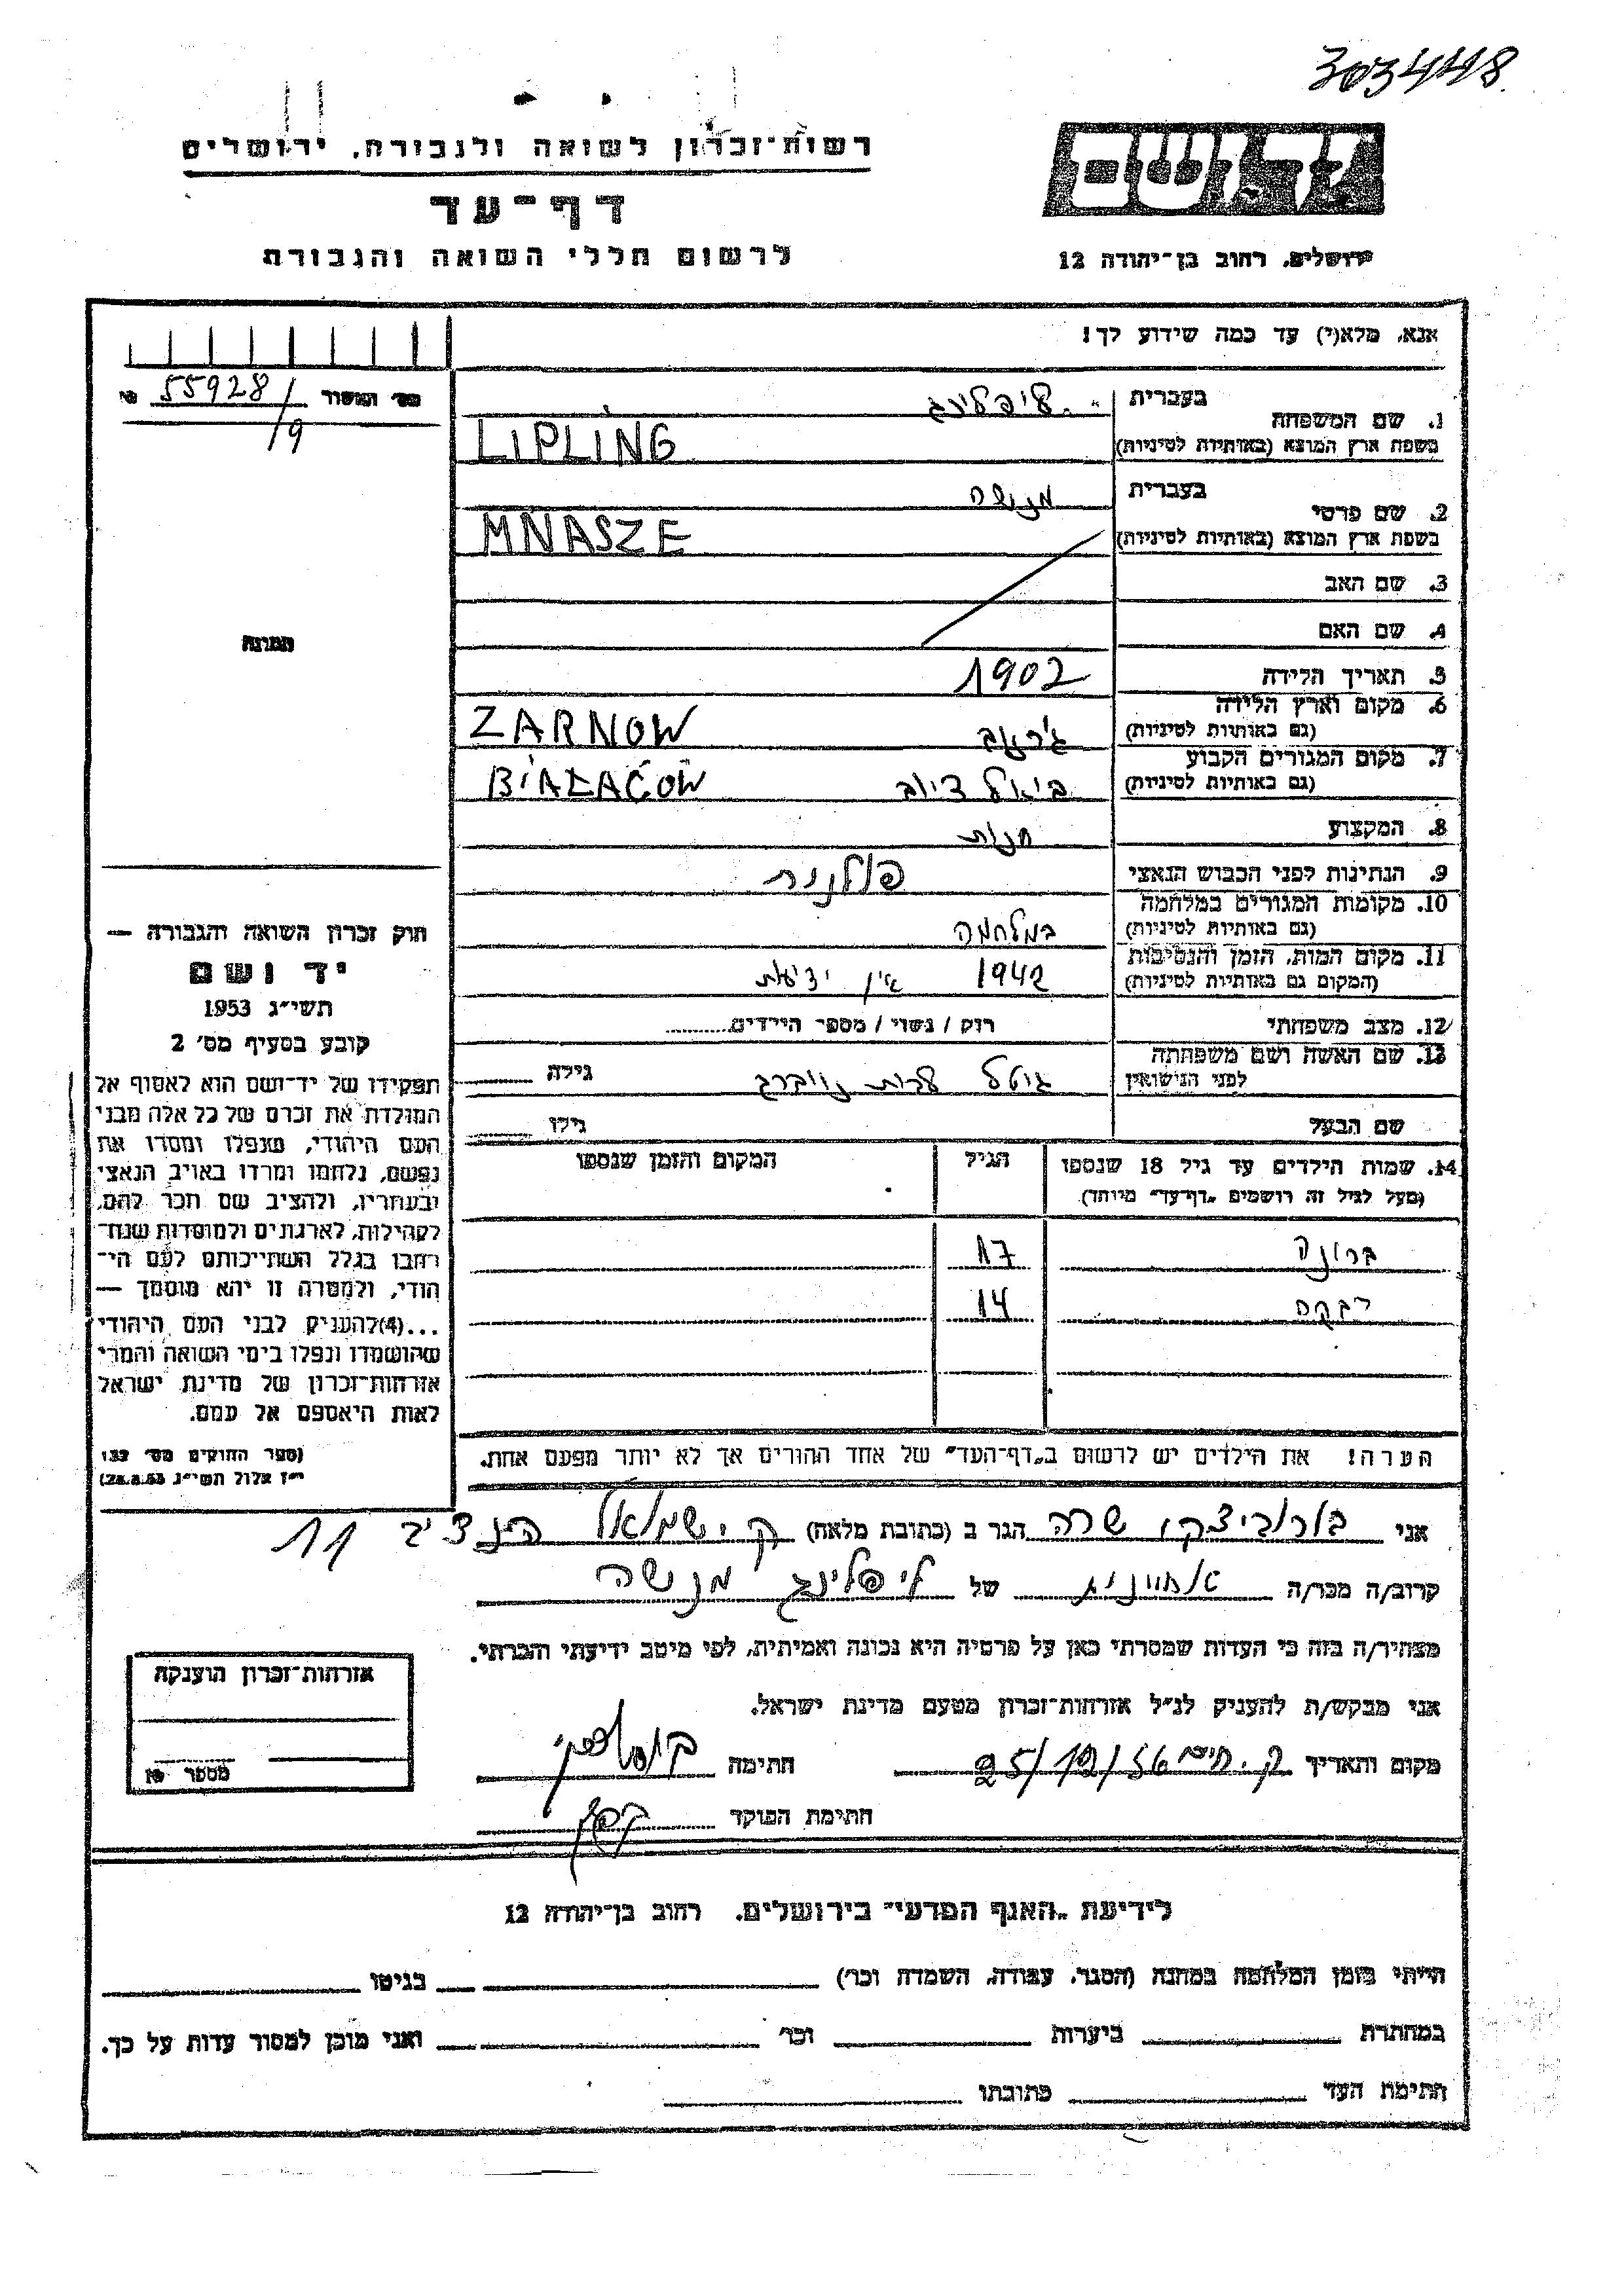 303448
רשות־זכרון לשואה ולגבורה, ירושלים
דף־עד
לרשום חללי השואה והגבורה
יד ושם
ירושלים, רחוב בן־יהודה 12
אנא, מלא(י) עד כמה שידוע לך!
55928/9
1. שם המשפחה
בעברית ליפלינג
בשפת ארץ המוצא (באותיות לטיניות) LIPLING
2. שם פרטי
בעברית מנשה
בשפת ארץ המוצא (באותיות לטיניות) MNASZE
3. שם האב
4. שם האם
5. תאריך הלידה 1902
6. מקום וארץ הלידה
(גם באותיות לטיניות) ZARNOW
7. מקום המגורים הקבוע
(גם באותיות לטיניות) BIAŁACOW
8. המקצוע חנות
9. הנתינות לפני הכבוש הנאצי פולנית
10. מקומות המגורים במלחמה
(גם באותיות לטיניות) במלחמה
11. מקום המות, הזמן והנסיבות
(המקום גם באותיות לטיניות) 1942 אין ידיעות
12. מצב משפחתי רוק / נשוי / מספר הילדים
13. שם האשה ושם משפחתה
לפני הנישואין גיטל לבית גילה
שם הבעל גילו
14. שמות הילדים עד גיל 18 שנספו הגיל המקום והזמן שנספו
(מעל לגיל זה רושמים „דף־עד” מיוחד)
ברונה 17
רבקה 14
הערה! את הילדים יש לרשום ב„דף־העד” של אחד ההורים אך לא יותר מפעם אחת.
תמונה
חוק זכרון השואה והגבורה —
יד ושם
תשי״ג 1953
קובע בסעיף מס׳ 2
תפקידו של יד־ושם הוא לאסוף אל
המולדת את זכרם של כל אלה מבני
העם היהודי, שנפלו ומסרו את
נפשם, נלחמו ומרדו באויב הנאצי
ובעוזריו, ולהציב שם וזכר להם,
לקהילות, לארגונים ולמוסדות שנח־
רבו בגלל השתייכותם לעם הי־
הודי, ולמטרה זו יהא מוסמך —
...(4)להעניק לבני העם היהודי
שהושמדו ונפלו בימי השואה והמרי
אזרחות־זכרון של מדינת ישראל
לאות היאספם אל עמם.
(ספר החוקים מס׳ 132
י״ז אלול תשי״ג 28.8.53)
אני שרה הגר ב (כתובת מלאה) ק. ישמואל הנציב 11
קרוב/ה מכר/ה אחיינית של ליפלינג מנשה
מצהיר/ה בזה כי העדות שמסרתי כאן על פרטיה היא נכונה ואמיתית, לפי מיטב ידיעתי והכרתי.
אני מבקש/ת להעניק לנ״ל אזרחות־זכרון מטעם מדינת ישראל.
מקום ותאריך ק. חיים 25/12/56 חתימה
חתימת הפוקד
אזרחות־זכרון הוענקה
מספר
לידיעת „האגף המדעי” בירושלים, רחוב בן־יהודה 12
הייתי בזמן המלחמה במחנה (הסגר, עבודה, השמדה וכו׳) בגיטו
במחתרת ביערות וכו׳ ואני מוכן למסור עדות על כך.
חתימת העד כתובתו